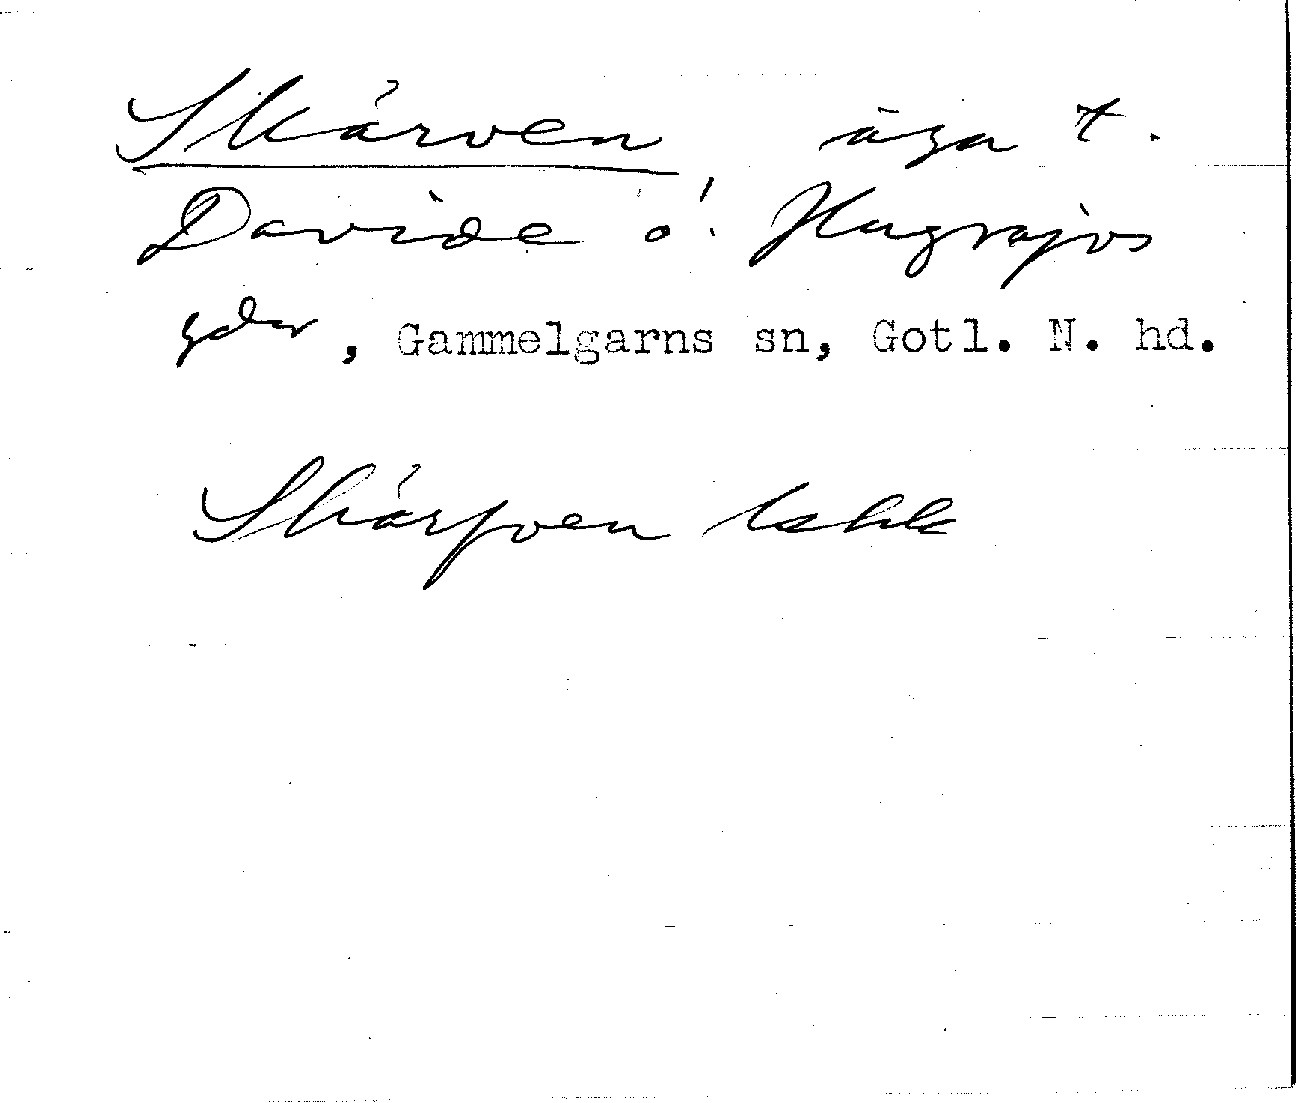 Skårven äga t.
Davide o. Hugrajvs
gdar, Gammelgarns sn, Gotl. N. hd.
Skårfven